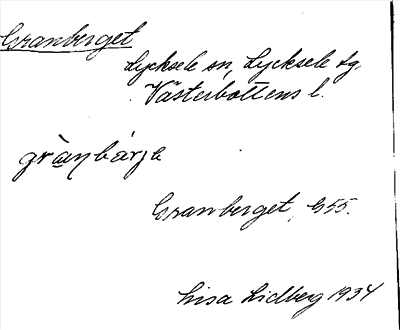 Granberget
Lycksele sn, Lycksele lg.
Västerbottens l.
Granberget, 
Lisa Lidberg 1934